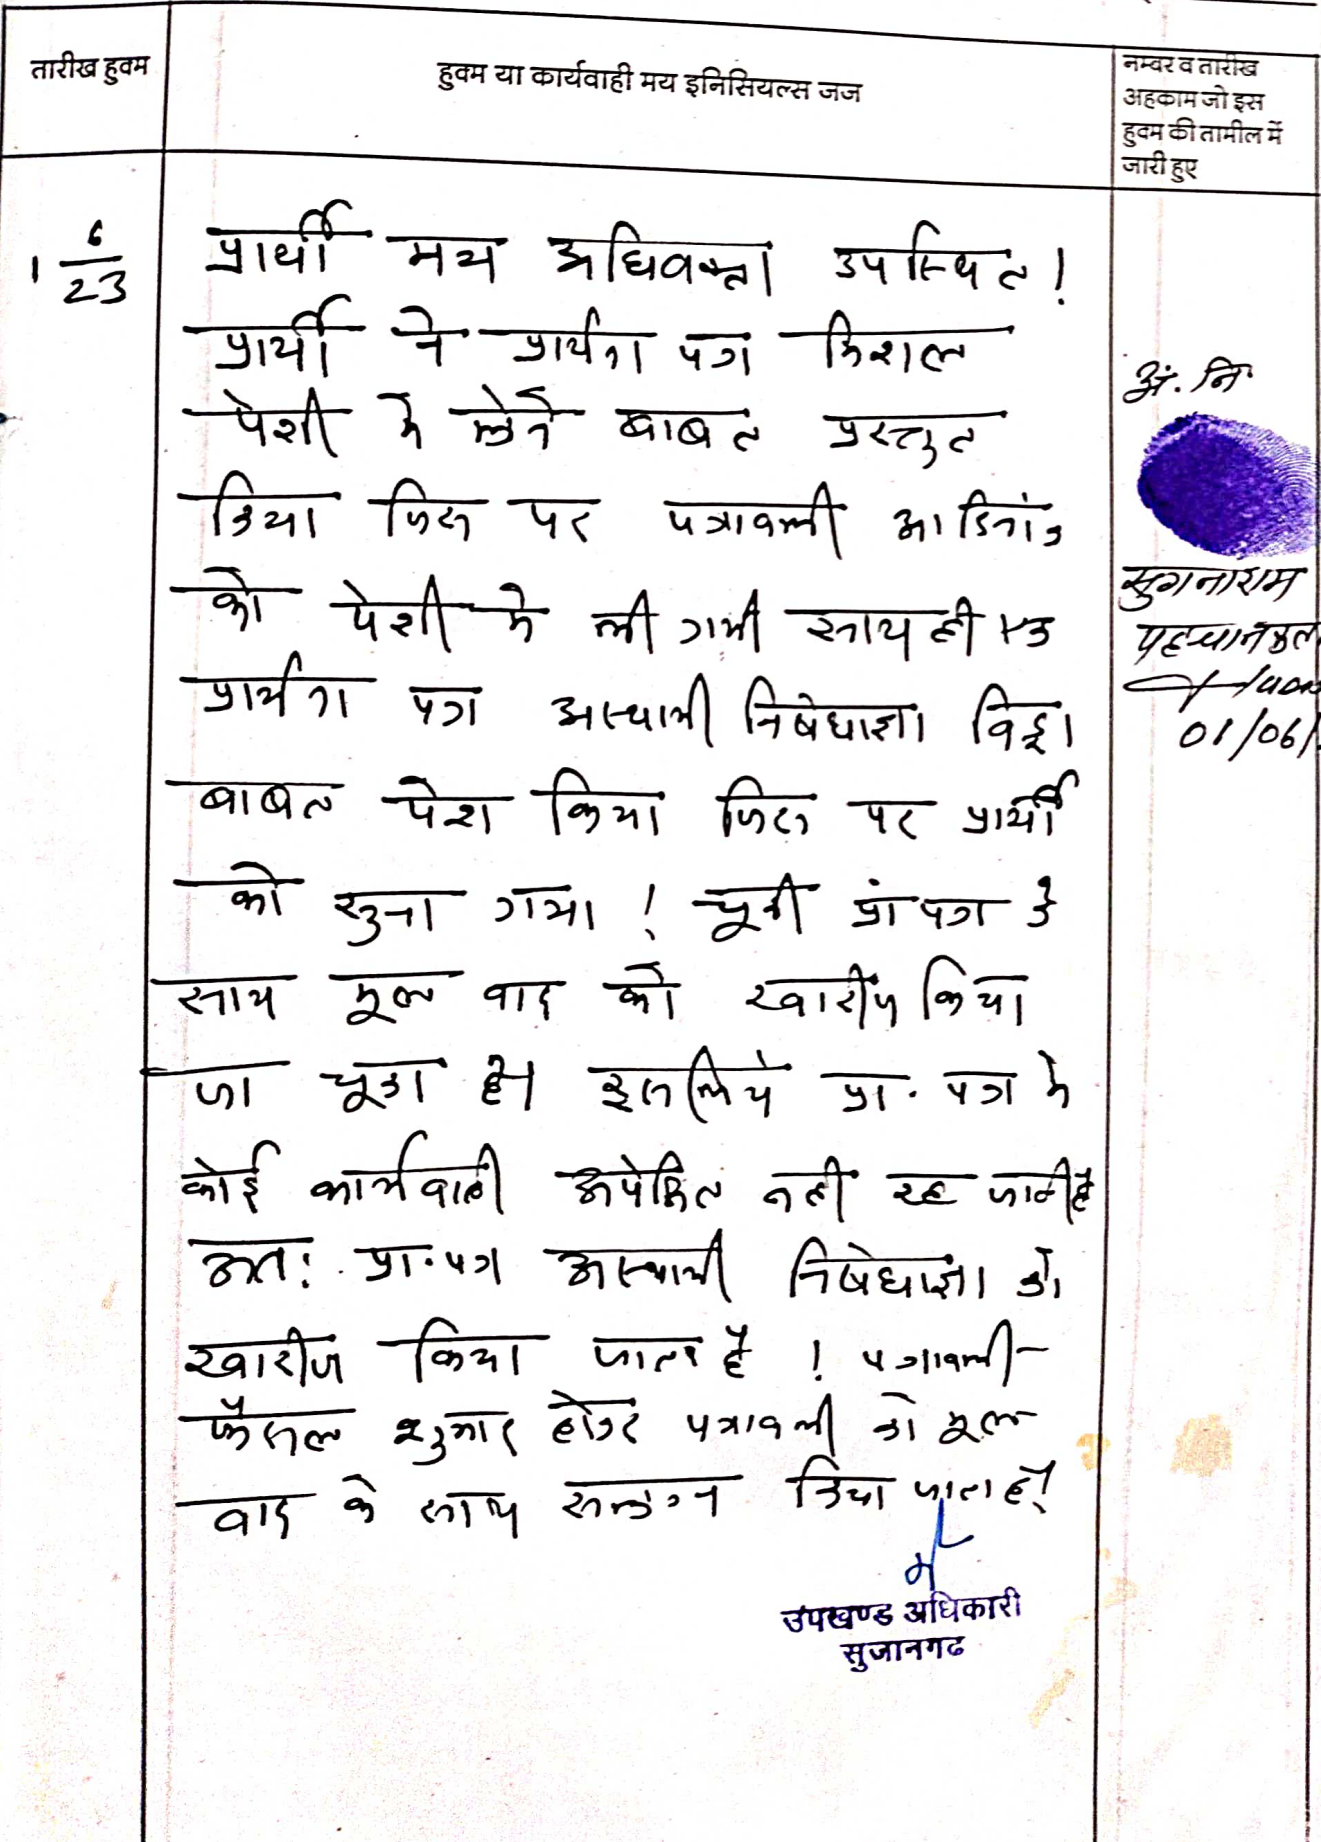 तारीख हुक्म
हुक्म या कार्यवाही मय इनिसियल्स जज
नम्बर व तारीख
अहकाम जो इस
हुक्म की तामील में
जारी हुए
1 6/23
प्रार्थी मय अधिवक्ता उपस्थित!
प्रार्थी ने प्रार्थना पत्र मिशल
पेशी मे लेने बाबत प्रस्तुत
किया जिस पर पत्रावली आ दिनांक
को पेशी मे ली गयी साथ ही एक
प्रार्थना पत्र अस्थायी निषेधाज्ञा विड्रा
बाबत पेश किया जिस पर प्रार्थी
को सुना गया! चूकी प्रा पत्र के
साथ मूल वाद को खारीज किया
जा चूका है। इसलिये प्रा. पत्र मे
कोई कार्यवाही अपेक्षित नही रह जाती है
अतः प्रा. पत्र अस्थायी निषेधाज्ञा को
खारीज किया जाता है! पत्रावली
फैसल शुमार होकर पत्रावली को मूल
वाद के साथ सलंग्न किया जाता है!
उपखण्ड अधिकारी
सुजानगढ
अं. नि
सुगनाराम
पहचानकर्ता
01/06/